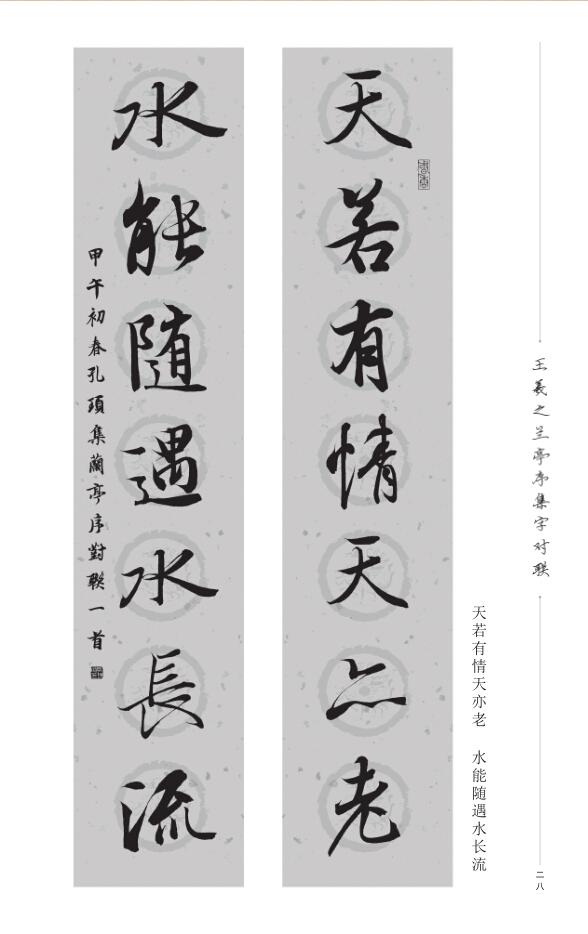 王羲之兰亭序集字对联
天若有情天亦老
水能随遇水長流
甲午初春孔頊集蘭亭序對联一首
天若有情天亦老 水能随遇水长流
二八